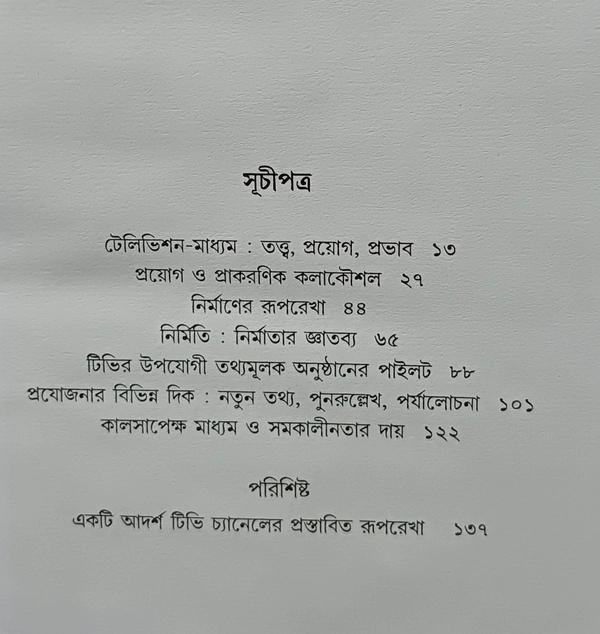 সূচীপত্র
টেলিভিশন-মাধ্যম : তত্ত্ব, প্রয়োগ, প্রভাব ১৩
প্রয়োগ ও প্রাকরণিক কলাকৌশল ২৭
নির্মাণের রূপরেখা ৪৪
নির্মিতি : নির্মাতার জ্ঞাতব্য ৬৫
টিভির উপযোগী তথ্যমূলক অনুষ্ঠানের পাইলট ৮৮
প্রযোজনার বিভিন্ন দিক : নতুন তথ্য, পুনরুল্লেখ, পর্যালোচনা ১০১
কালসাপেক্ষ মাধ্যম ও সমকালীনতার দায় ১২২
পরিশিষ্ট
একটি আদর্শ টিভি চ্যানেলের প্রস্তাবিত রূপরেখা ১৩৭